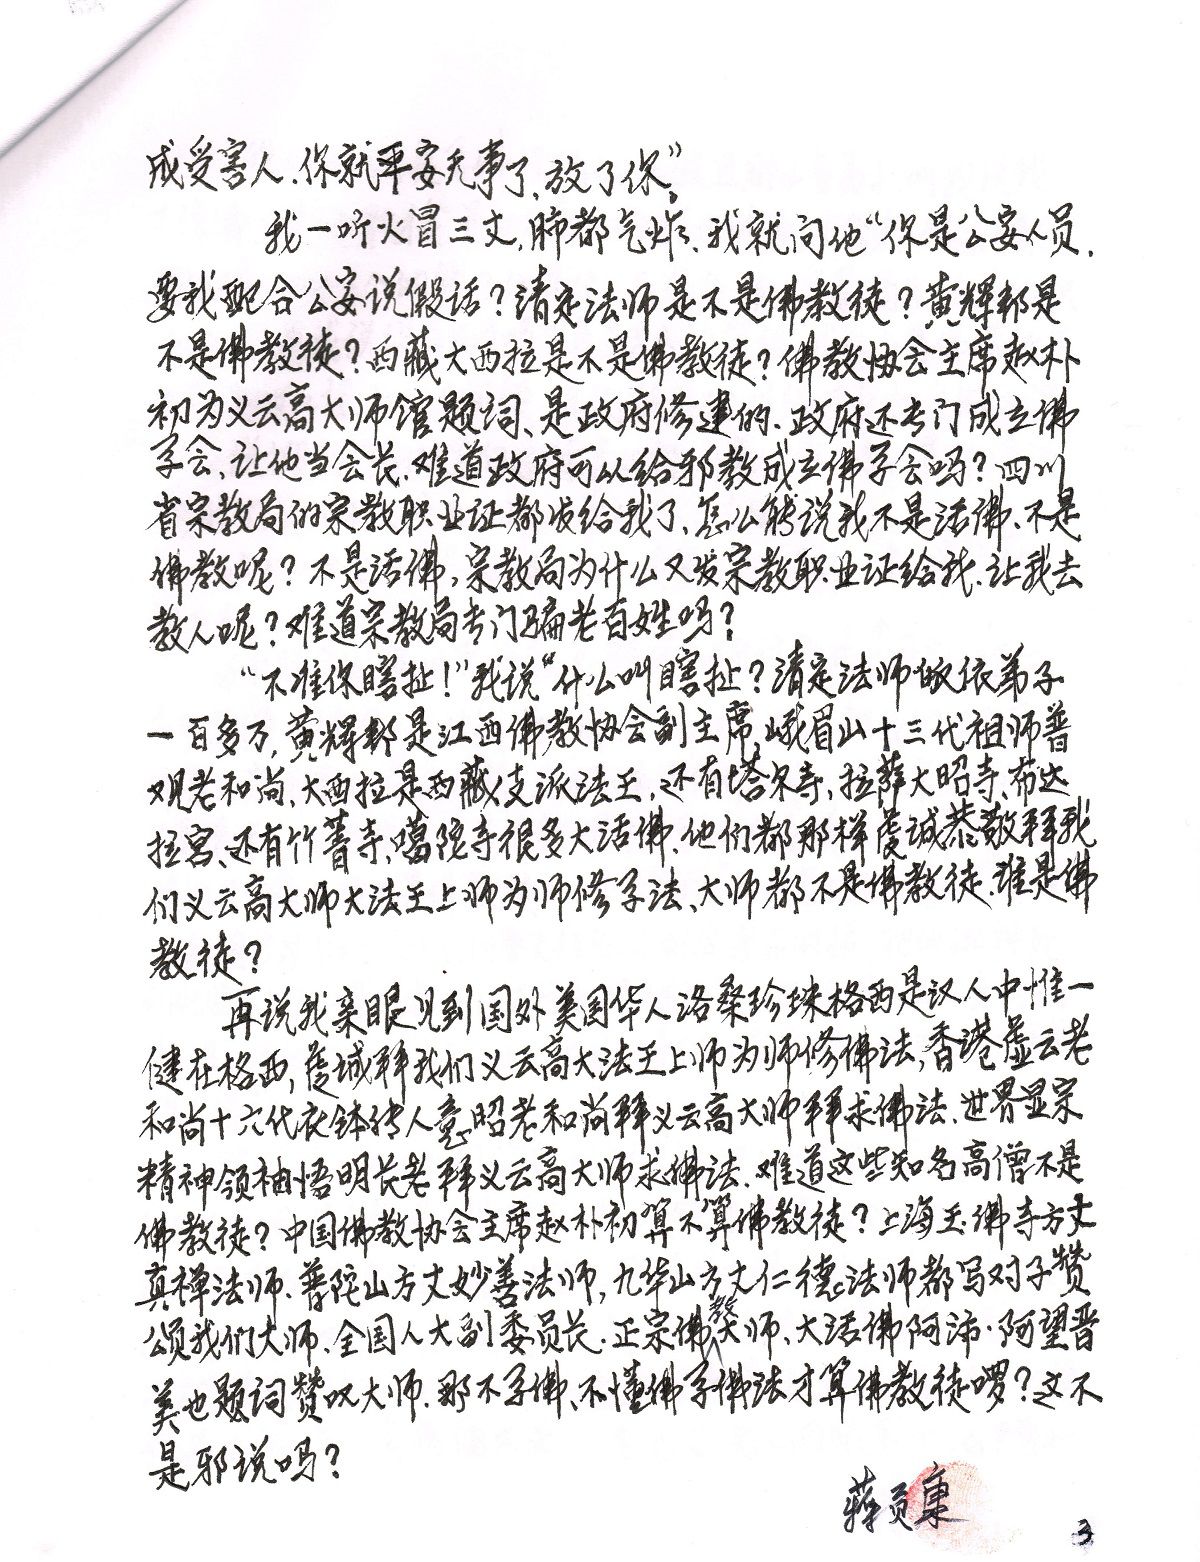 成受害人、你就平安无事了、放了你”。
我一听火冒三丈，肺都气炸、我就问他“你是公安人员，
要我配合公安说假话？清定法师是不是佛教徒？黄辉邦是
不是佛教徒？西藏大西拉是不是佛教徒？佛教协会主席赵朴
初为义云高大师馆题词、是政府修建的、政府还专门成立佛
学会、让他当会长、难道政府可以给邪教成立佛学会吗？四川
省宗教局的宗教职业证都发给我了、怎么能说我不是活佛、不是
佛教呢？不是活佛，宗教局为什么又发宗教职业证给我、让我去
教人呢？难道宗教局专门骗老百姓吗？
“不准你瞎扯！”我说“什么叫瞎扯？清定法师皈依弟子
一百多万，黄辉邦是江西佛教协会副主席，峨眉山十三代祖师普
观老和尚、大西拉是西藏支派法王，还有塔尔寺，拉萨大昭寺、布达
拉宫、还有竹菁寺，噶陀寺很多大活佛、他们都那样虔诚恭敬拜我
们义云高大师大法王上师为师修学法、大师都不是佛教徒、谁是佛
教徒？
再说我亲眼见到国外美国华人洛桑珍珠格西是汉人中惟一
健在格西，虔诚拜我们义云高大法王上师为师修佛法，香港虚云老
和尚十六代衣钵传人意昭老和尚拜义云高大师拜求佛法、世界显宗
精神领袖悟明长老拜义云高大师求佛法、难道这些知名高僧不是
佛教徒？中国佛教协会主席赵朴初算不算佛教徒？上海玉佛寺方丈
真禅法师、普陀山方丈妙善法师，九华山方丈仁德法师都写对子赞
颂我们大师、全国人大副委员长、正宗佛教大师、大活佛阿沛·阿望晋
美也题词赞叹大师、那不学佛、不懂佛学佛法才算佛教徒啰？这不
是邪说吗？
蒋贡康
3